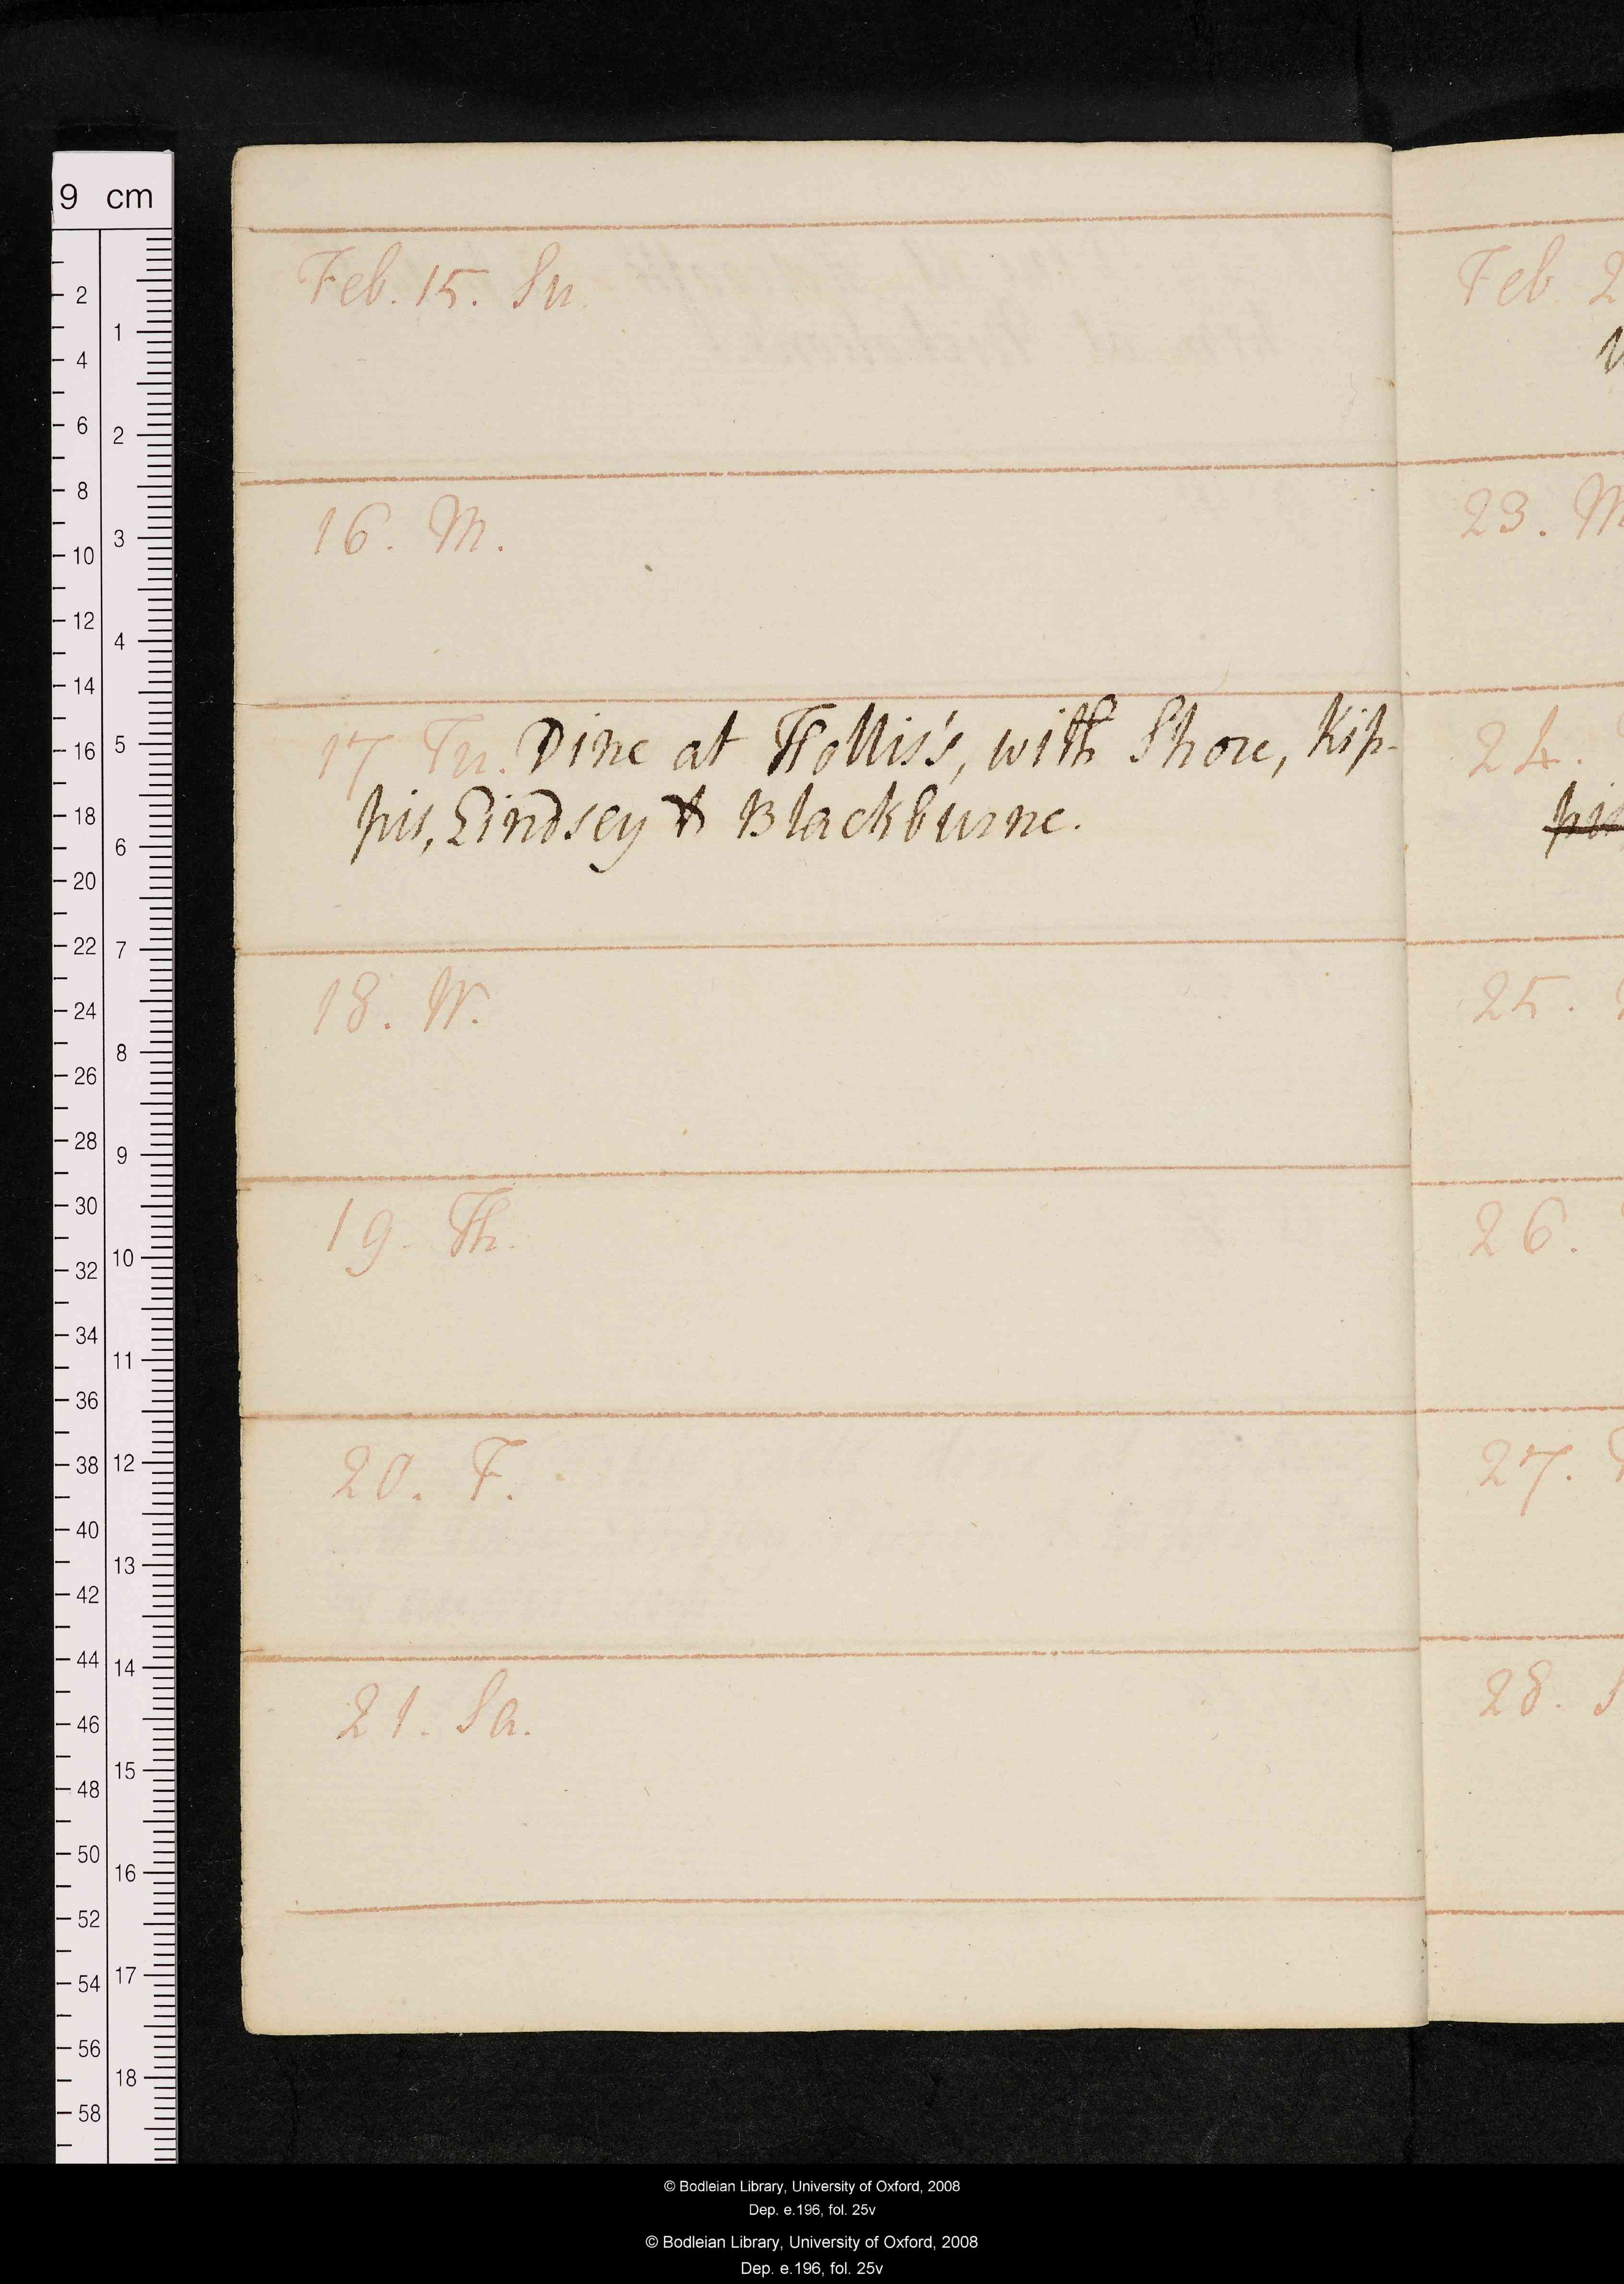 9 cm
Feb. 15. Su.
16. M.
17 Tu. Dine at Hollis's, with Shore, Kip-
pis, Lindsey & Blackburne.
18. W.
19. Th.
20. F.
21. Sa.
Feb. 2
23. M
24.
25.
26.
27.
28. S
2
4
6
8
10
12
14
16
18
20
22
24
26
28
30
32
34
36
38
40
42
44
46
48
50
52
54
56
58
1
2
3
4
5
6
7
8
9
10
11
12
13
14
15
16
17
18
© Bodleian Library, University of Oxford, 2008
Dep. e.196, fol. 25v
© Bodleian Library, University of Oxford, 2008
Dep. e.196, fol. 25v